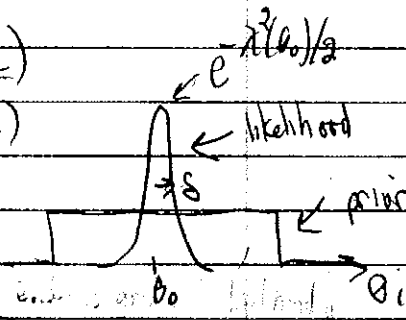 e^{-λ²(θ₀)/2}
likelihood
δ
prior
θ₀
θi